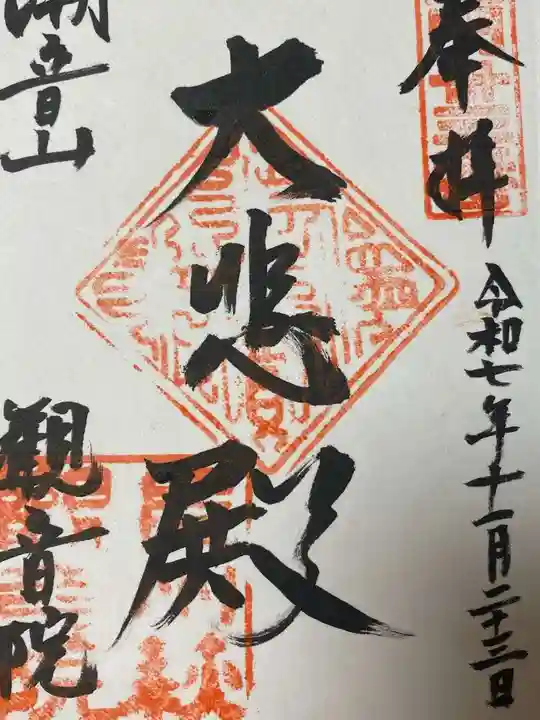 奉拝
令和七年十一月二十三日
大悲殿
潮音山
観音院